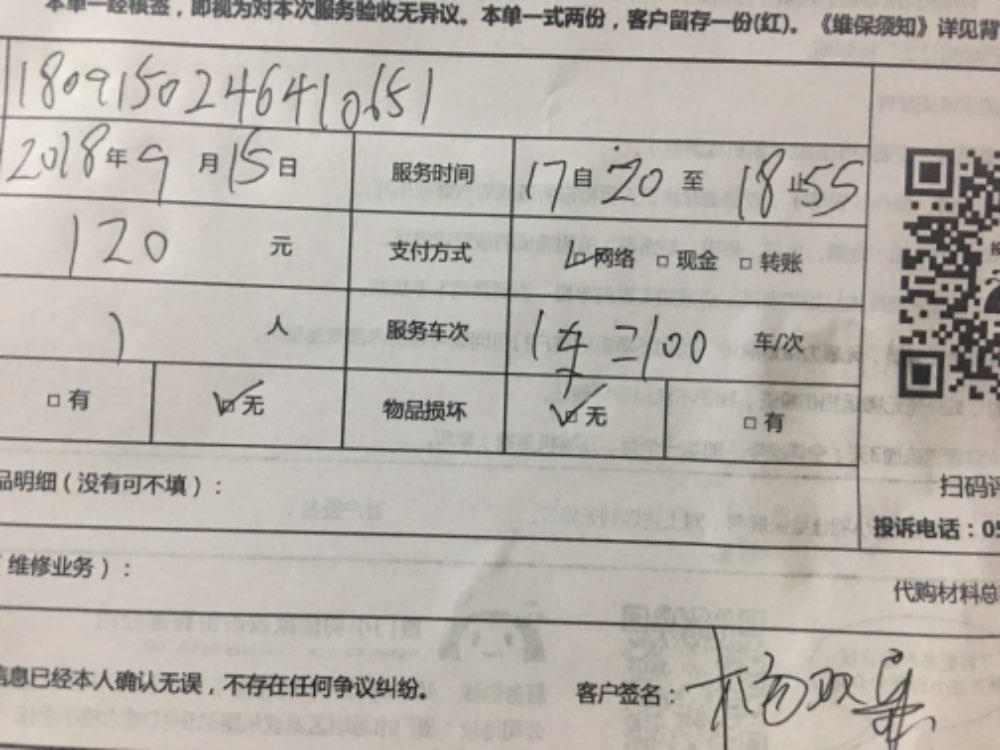 本单一经核签，即视为对本次服务验收无异议。本单一式两份，客户留存一份(红)。《维保须知》详见背
1809150246410651
2018年9月15日 服务时间 17自20至18止55
120元 支付方式 ☑网络 □现金 □转账
1人 服务车次 100 车/次
□有 ☑无 物品损坏 ☑无 □有
品明细（没有可不填）： 扫码评
投诉电话：05
维修业务）： 代购材料总
信息已经本人确认无误，不存在任何争议纠纷。 客户签名：杨